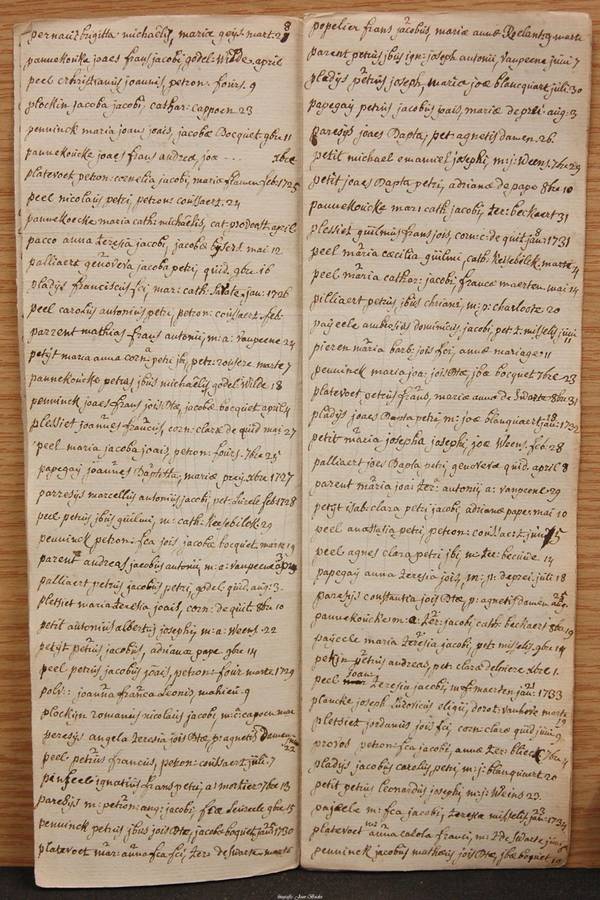 pernaut brigitta michaelis, mariæ geijs. mart. 28
pannekoucke joaes frans jacobi godel: Wilde. april
peel christianus joannis, petron: fours. 9
plockin jacoba jacobi, cathar: cappoen 23
penninck maria joan: joais, jacobæ Bocquet. 9bre 11
pannekoucke joaes frans andreæ, joæ ... xbre
platevoet petron: cornelia jacobi, mariæ flamen feb: 1725
peel nicolaus petri, petron: coussaert. 24
pannekoecke maria cath: michaelis, cat: prodonst. april
pacco anna teresia jacobi, jacobæ mai 12
palliaert genoveva jacoba petri, quid. 9bre 16
pladijs franciscus fci, mar: cath: jan: 1726
peel carolus antonius petri, petron: coussaert. feb:
parrent mathias frans antonii, m: a: vanpeene 24
petijt maria anna corn: petri jb, petr: marte 7
pannekoucke petrus jbus michaelis, godel Wilde 18
penninck joaes frans jois Btæ, jacobæ bocquet. april 4
plessiet joannes francus, corn: claræ de quid mai 27
peel maria jacoba joais, petron: fours. 7bre 25
papegaij joannes Baptista, mariæ preij. xbre 1727
parresijs marcellus antonius jacobi, pet: feb: 1728
peel petrus jbus guilmi, m: cath: Kesebilck. 29
penninck petron: fca jois, jacobæ bocquet. marte 19
parent andreas jacobus antonii, m: a: vanpeene
palliaert petrus jacobus petri, godel quid. aug: 3
plessiet maria teresia joais, corn: de quit. 8br 10
petit antonius albertus josephi, m: a: Weens. 22
petijt petrus jacobus, adrianæ pape. 9bre 14
peel petrus jacobus joais, petron: four marte 1729
joanna franca Leonis, mahieu. 9
plockijn romanus nicolaus jacobi, m: c: capoen mai
peresijs angela teresia jois Btæ, p: agnetis damen 22
peel petrus francus, petron: coussaert. juli. 7
ignatius frans petri, a: mortier 7bre 13
paresijs m: petron: ang: jacobi, 9bre 15
penninck petrus jbus jois Btæ, jacobæ boquet. jan: 1730
platevoet mar: anna fca fci, ter: de swarte. marte
popelier frans jacobus, mariæ annæ Roelants 9 marte
parent petrus jbus ign: joseph antonii, vanpeene juni 7
pladijs petrus joseph, mariæ joæ blancquart. juli 30
papegaij petrus jacobus joais, mariæ de prei. aug: 3
paresijs joaes Bapta, pet: agnetis damen. 26
petit michael emanuel josephi, m: j: Weens. 7bre 29
petit joaes Bapta petri, adrianæ de pape 8bre 10
pannekoucke mar: cath: jacobi, ter: beckaert 31
plessiet guilmus frans jois, corn: c: de quit. jan: 1731
peel maria cæcilia guilmi, cath: Kesebilck. marte 4
peel maria cathar: jacobi, francæ maerten. mai 14
pilliaert petrus jbus chriani, m: p: charloote 20
paijcele ambrosius dominicus, jacobi, pet: t: misselij juni 11
pieren maria barb: jois fci, annæ mariage 11
penninck maria joa: jois Btæ, jbæ bocquet 7bre 23
platevoet petrus frans, mariæ annæ de Swarte 8bre 31
pladijs joaes Bapta petri, m: joæ blanquaert. jan: 1732
petit maria josepha josephi, joæ Weens. feb: 28
palliaert joes Bapta petri, genovevæ quid. april 8
parent maria joa: ter: antonii, a: vanpeene. 29
petijt isab: clara petri jacobi, adrianæ pape mai 10
peel anastasia petri, petron: coussaert. juni 15
peel agnes clara petri jbi, m: ter: becuue. 14
papegaij anna teresia jois, m: p: de prei. juli 18
paresijs constantia jois Btæ, p: agnetis damen. aug: 25
pannekoucke m: a: ter: jacobi, cath: beckaert 8bre 19
paijcele maria teresia jacobi, pet: misselij. 9bre 19
pekijn petrus andreas, pet: claræ debriere. xbre 1.
peel joan: teresia jacobi, m: f: maerten jan: 1733
plancke joseph Ludovicus eligii, dorot: vanhove marte 19
plessiet jordanus jois fci, corn: claræ quid. juni 9
provos petron: fca jacobi, annæ ter: blieck 7bre 4
pladijs jacobus carolus, petri, m: j: blanquart 20
petit petrus leonardus josephi, m: j: Weins 23
pajcele m: fca jacobi, teresiæ misselij. jan: 1734
platevoet anna carola franci, m: t: de Swarte
penninck jacobus mathæus jois Btæ, jbæ boquet